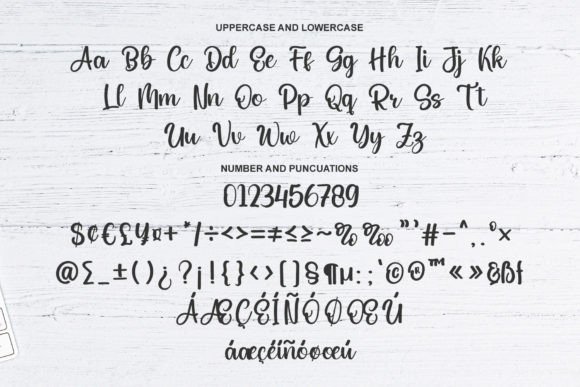 UPPERCASE AND LOWERCASE
Aa Bb Cc Dd Ee Ff Gg Hh Ii Jj Kk
Ll Mm Nn Oo Pp Qq Rr Ss Tt
Uu Vv Ww Xx Yy Zz
NUMBER AND PUNCUATIONS
0123456789
$¢€£¥¤+*/÷<>=≠≤≥~%‰"'#-^,.°×
@∑_±()¿?¡!{}‹›[]§¶µ:;‘©®™«»&ßƒ
ÁÆÇÉÍÑÓØŒÚ
áæçéíñóøœú